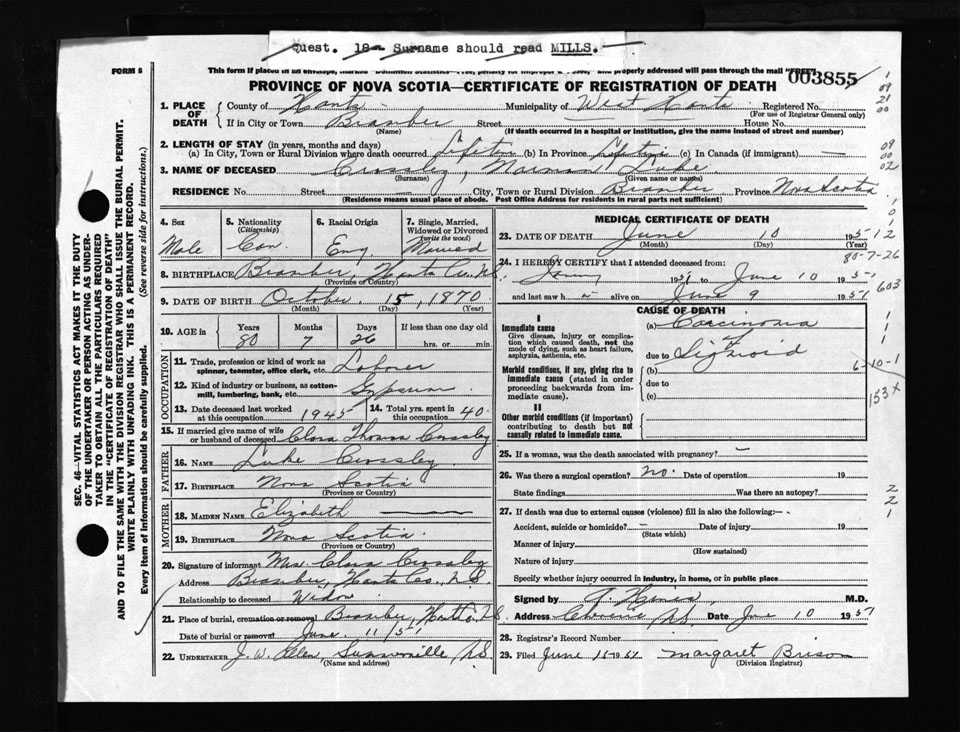 Quest. 18 - Surname should read MILLS.
FORM 8
003855
PROVINCE OF NOVA SCOTIA—CERTIFICATE OF REGISTRATION OF DEATH
1. PLACE OF DEATH County of Hants Municipality of West Hants Registered No.
(For use of Registrar General only)
If in City or Town Bramber Street House No.
(Name) (If death occurred in a hospital or institution, give the name instead of street and number)
2. LENGTH OF STAY (in years, months and days)
(a) In City, Town or Rural Division where death occurred Lifetime (b) In Province Lifetime (c) In Canada (if immigrant) —
3. NAME OF DECEASED Crossley, Norman
(Surname) (Given name or names)
RESIDENCE No. Street — City, Town or Rural Division Bramber Province Nova Scotia
(Residence means usual place of abode. Post Office Address for residents in rural parts not sufficient)
4. Sex Male
5. Nationality (Citizenship) Can
6. Racial Origin Eng
7. Single, Married, Widowed or Divorced (write the word) Married
8. BIRTHPLACE Bramber, Hants Co. N.S.
(Province or Country)
9. DATE OF BIRTH October 15, 1870
(Month) (Day) (Year)
10. AGE in Years Months Days If less than one day old
80 7 26 hrs. or min.
OCCUPATION
11. Trade, profession or kind of work as spinner, teamster, office clerk, etc. Laborer
12. Kind of industry or business, as cotton-mill, lumbering, bank, etc. Gypsum
13. Date deceased last worked at this occupation 1945 14. Total yrs. spent in this occupation 40.
15. If married give name of wife or husband of deceased Clara Thomas Crossley
FATHER
16. NAME Luke Crossley
17. BIRTHPLACE Nova Scotia
(Province or Country)
MOTHER
18. MAIDEN NAME Elizabeth —
19. BIRTHPLACE Nova Scotia
(Province or Country)
20. Signature of informant Mrs Clara Crossley
Address Bramber, Hants Co., N.S.
Relationship to deceased Widow
21. Place of burial, cremation or removal Bramber, Hants Co, N.S.
Date of burial or removal June 11/51
22. UNDERTAKER J. W. Allen, N.S.
(Name and address)
MEDICAL CERTIFICATE OF DEATH
23. DATE OF DEATH June 10 1951
(Month) (Day) (Year)
24. I HEREBY CERTIFY that I attended deceased from:
1951 to June 10 1951
and last saw h alive on June 9 1951
CAUSE OF DEATH
I
Immediate cause (a) Carcinoma
Give disease, injury or complication which caused death, not the mode of dying, such as heart failure, asphyxia, asthenia, etc.
due to Sigmoid
Morbid conditions, if any, giving rise to immediate cause (stated in order proceeding backwards from immediate cause).
(b)
due to
(c)
II
Other morbid conditions (if important) contributing to death but not causally related to immediate cause.
25. If a woman, was the death associated with pregnancy? —
26. Was there a surgical operation? No. Date of operation 19
State findings Was there an autopsy?
27. If death was due to external causes (violence) fill in also the following:
Accident, suicide or homicide? — Date of injury 19
(State which)
Manner of injury
(How sustained)
Nature of injury
Specify whether injury occurred in industry, in home, or in public place
Signed by M.D.
Address N.S. Date June 10 1951
28. Registrar's Record Number
29. Filed June 15 1951 Margaret Brison
(Division Registrar)
SEC. 46—VITAL STATISTICS ACT MAKES IT THE DUTY
OF THE UNDERTAKER OR PERSON ACTING AS UNDER-
TAKER TO OBTAIN ALL THE PARTICULARS REQUIRED
IN THE "CERTIFICATE OF REGISTRATION OF DEATH"
AND TO FILE THE SAME WITH THE DIVISION REGISTRAR WHO SHALL ISSUE THE BURIAL PERMIT.
WRITE PLAINLY WITH UNFADING INK. THIS IS A PERMANENT RECORD.
Every item of information should be carefully supplied. (See reverse side for instructions.)
1
09
21
00
09
00
02
80-7-26
603
6-10-1
153+
2
2
1